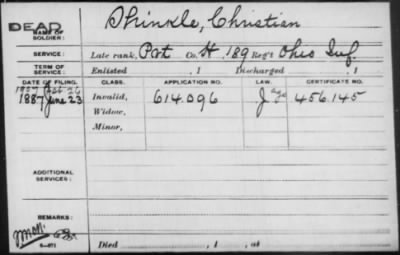 DEAD
NAME OF SOLDIER: Shinkle, Christian
SERVICE: Late rank, Pvt Co. H, 189 Reg't Ohio Inf.
TERM OF SERVICE: Enlisted , 1 Discharged , 1
DATE OF FILING. CLASS. APPLICATION NO. LAW. CERTIFICATE NO.
1887 June 23 Invalid, 614.096 J 456.145
Widow,
Minor,
ADDITIONAL SERVICES:
REMARKS:
Died , 1 , at